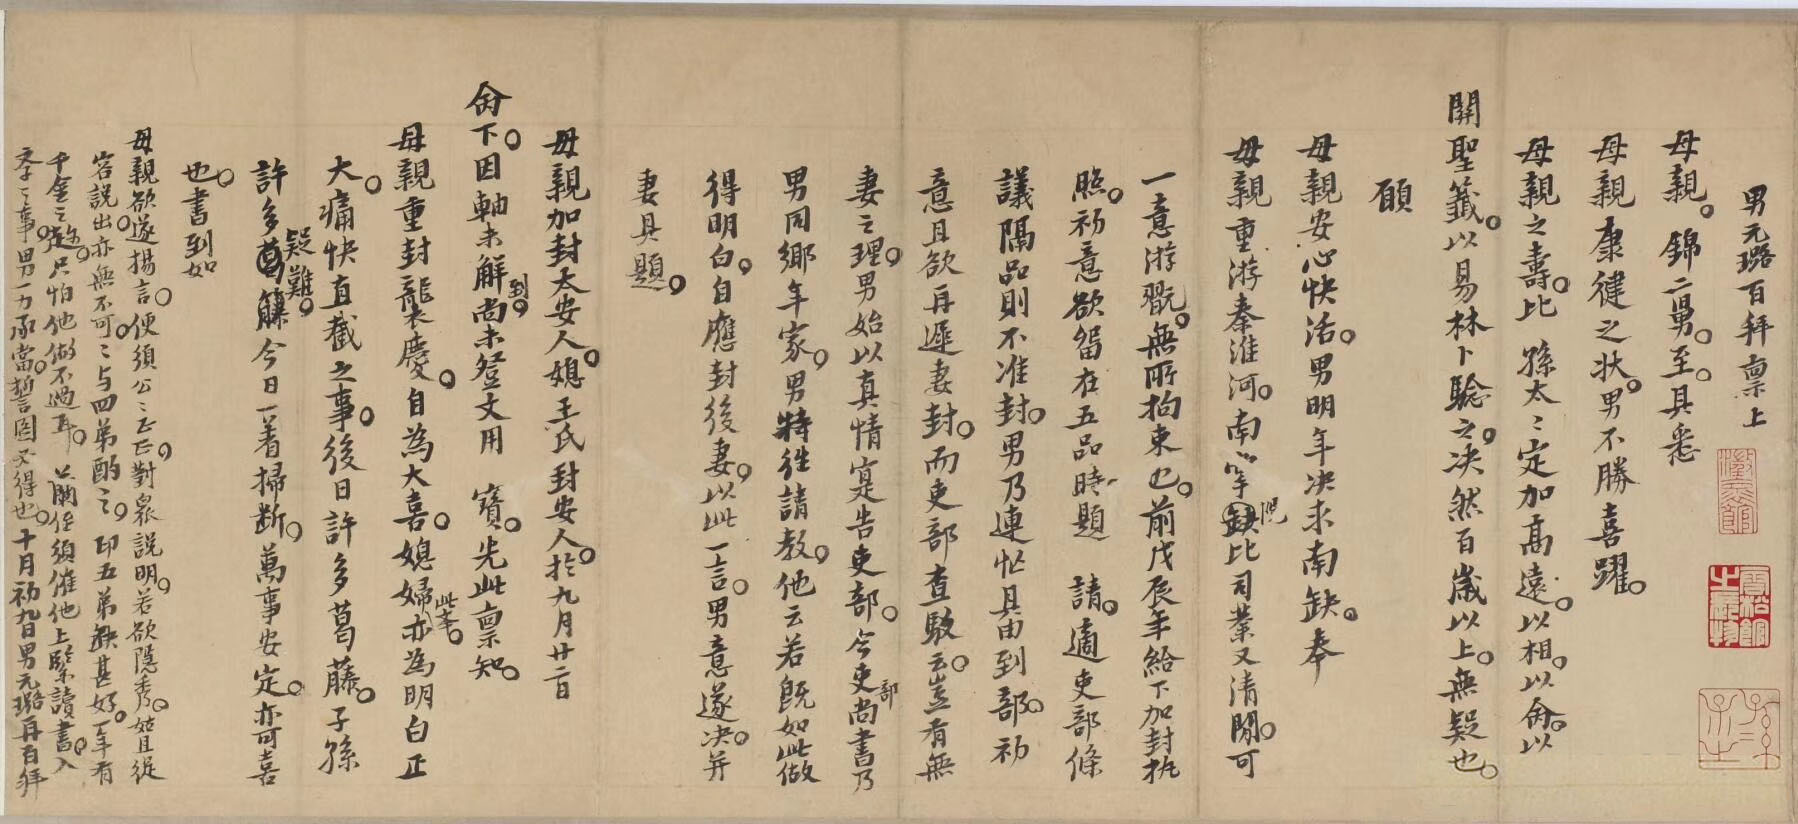 男元璐百拜禀上
母親。錦二舅。至。具悉
母親康健之狀。男不勝喜躍。
母親之壽。比孫太〻定加高遠。以相。以命。以
關聖籤。以易林卜驗之。决然百歲以上。無疑也。
願
母親安心快活。男明年决求南缺。奉
母親重游秦淮河。南缺比司業又清閒。可
一意游翫。無所拘束也。前戊辰年給下加封執
照。初意欲留在五品時題請。適吏部條
議隔品則不准封。男乃連忙具由到部。初
意且欲再遲妻封。而吏部查駁云。豈有無
妻之理。男始以真情寔告吏部。今吏部尚書乃
男同鄉年家。男特往請教。他云若既如此做
得明白。自應封後妻。以此一言。男意遂决。并
妻具題。
母親加封太安人。媳王氏封安人。於九月廿二日
命下。因軸未解到。尚未登文用寶。先此禀知。
母親重封襲慶。自為大喜。媳婦此事。亦為明白正
大。痛快直截之事。後日許多葛藤。子孫
許多疑難。今日一著掃斷。萬事安定。亦可喜
也。書到如
母親欲遂揚言。便須公〻正正。對衆說明。若欲隱秀。姑且從
容說出。亦無不可。〻与四弟酌之。即五弟缺甚好。年有
千金之。只怕他做不過耳。蘭侄須催他上緊讀書。入
季〻事。男一力承當。誓圖必得也。十月初九日男元璐再百拜